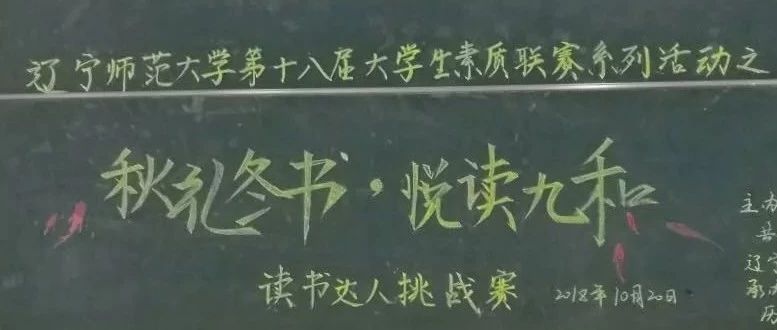 辽宁师范大学第十八届大学生素质联赛系列活动之
秋礼冬书·悦读九和
读书达人挑战赛
2018年10月20日
主办
共
辽宁
承办
历